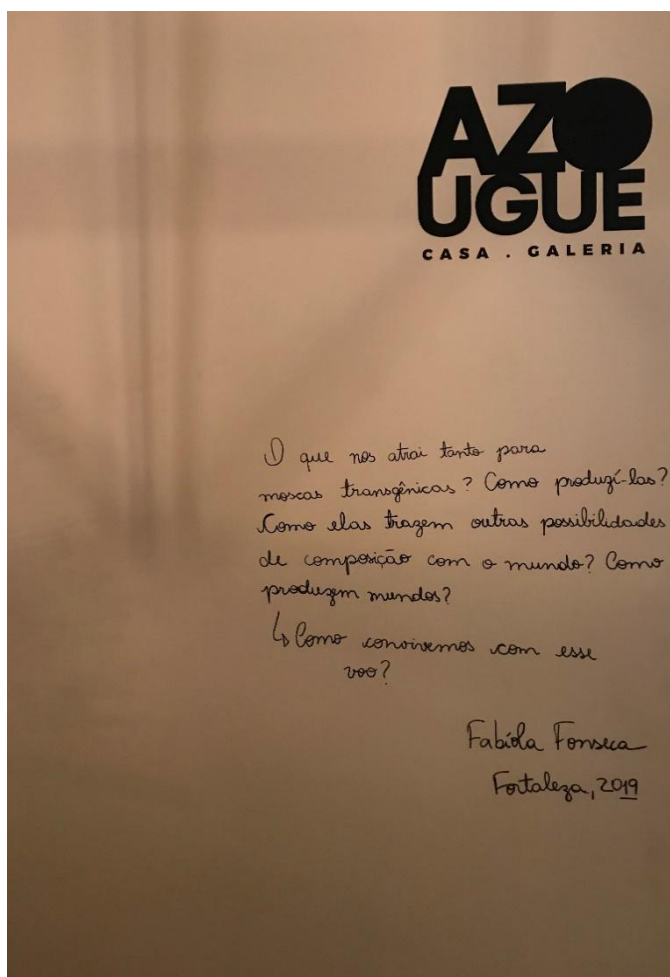 AZO
UGUE
CASA . GALERIA
O que nos atrai tanto para
moscas transgênicas? Como produzí-las?
Como elas trazem outras possibilidades
de composição com o mundo? Como
produzem mundos?
↳ Como convivemos com esse
voo?
Fabíola Fonseca
Fortaleza, 2019